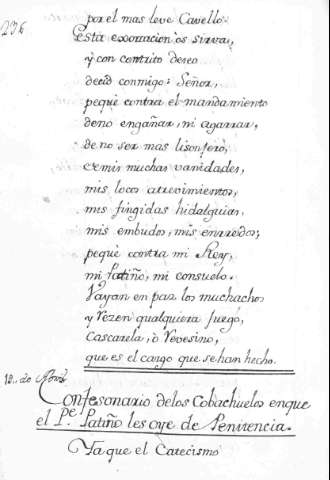 236
por el mas leve Cavello.
Esta exorracion os sirva,
y con contrito deseo
decid conmigo: Señor,
peque contra el mandamiento
de no engañar, ni agarrar,
de no ser mas lisonfero,
de mis muchas vanidades,
mis locos atrevimientos,
mis fingidas hidalguias,
mis embudos, mis enrredos;
peque contra mi Rey,
mi Patiño, mi consuelo.
Vayan en paz los muchachos
y Rezen qualquiera fuego,
Cascarela, ò Revesino,
que es el cargo que se han hecho.
12.. de Nov.e
Confesonario de los Cobachuelos en que
el P.e Patiño les oye de Penitencia.
Ya que el Catecismo